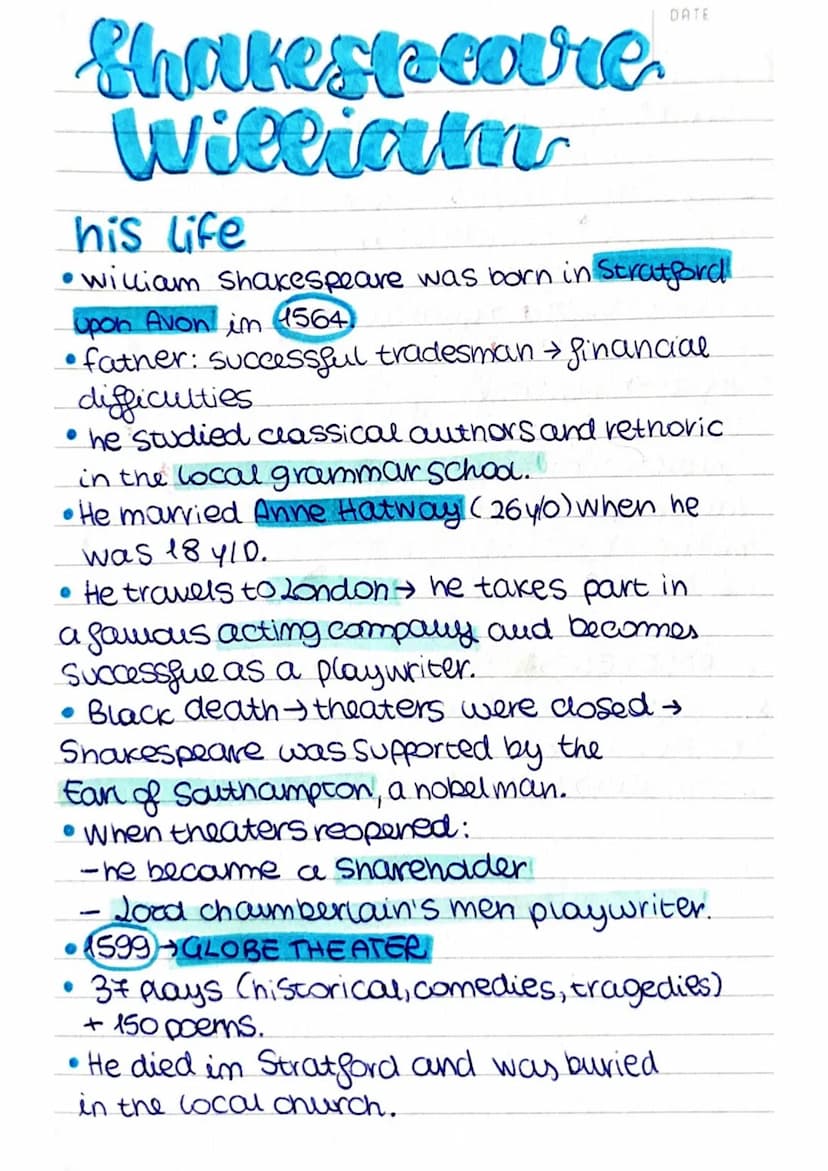 DATE
Shakespeare
William
his life
• William Shakespeare was born in Stratford
upon Avon in 1564.
• father: successful tradesman → financial
difficulties
• he studied classical authors and rethoric
in the local grammar school.
• He married Anne Hatway (26 y/o) when he
was 18 y/o.
• He travels to London → he takes part in
a famous acting company and becomes
successful as a playwriter.
• Black death → theaters were closed →
Shakespeare was supported by the
Earl of Southampton, a nobelman.
• When theaters reopened:
- he became a shareholder
- Lord chamberlain's men playwriter.
• 1599 → GLOBE THEATER
• 37 plays (historical, comedies, tragedies)
+ 150 poems.
• He died in Stratford and was buried
in the local church.